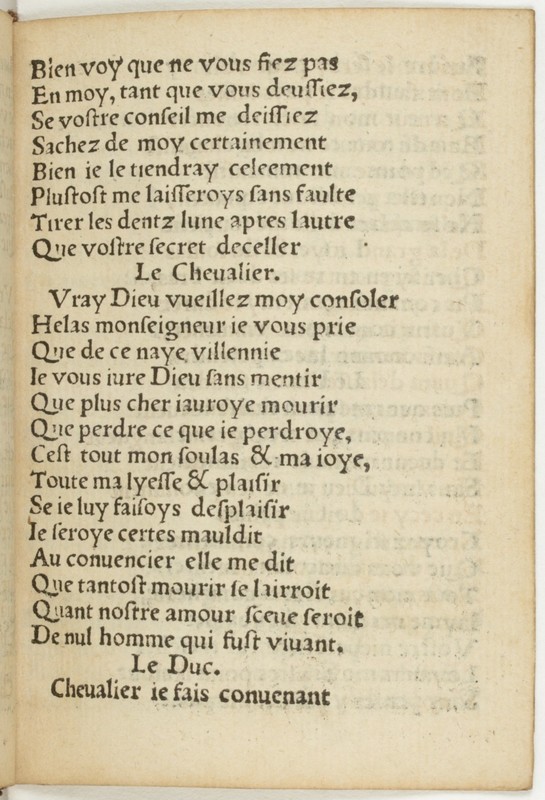 Bien voy que ne vous fiez pas
En moy, tant que vous deuſſiez,
Se voſtre conſeil me deiſſiez
Sachez de moy certainement
Bien ie le tiendray celeement
Pluſtoſt me laiſſeroys ſans faulte
Tirer les dentz lune apres lautre
Que voſtre ſecret deceller
Le Cheualier.
Vray Dieu vueillez moy conſoler
Helas monſeigneur ie vous prie
Que de ce naye villennie
Ie vous iure Dieu ſans mentir
Que plus cher iauroye mourir
Que perdre ce que ie perdroye,
Ceſt tout mon ſoulas & ma ioye,
Toute ma lyeſſe & plaiſir
Se ie luy faiſoys deſplaiſir
Ie ſeroye certes mauldit
Au conuencier elle me dit
Que tantoſt mourir ſe lairroit
Quant noſtre amour ſceue ſeroit
De nul homme qui fuſt viuant.
Le Duc.
Cheualier ie fais conuenant